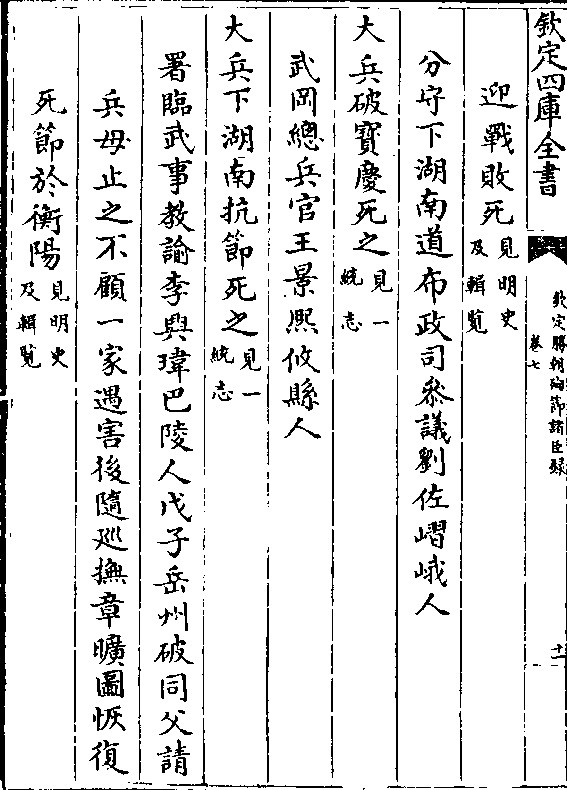 欽定四庫全書
欽定勝朝殉節諸臣錄
卷七
十一
迎戰敗死見明史及輯覽
分守下湖南道布政司叅議劉佐嶍峨人
大兵破寶慶死之見一統志
武岡總兵官王景熈攸縣人
大兵下湖南抗節死之見一統志
署臨武事教諭李興瑋巴陵人戊子岳州破同父請
兵母止之不顧一家遇害後隨廵撫章曠圖恢復
死節於衡陽見明史及輯覽